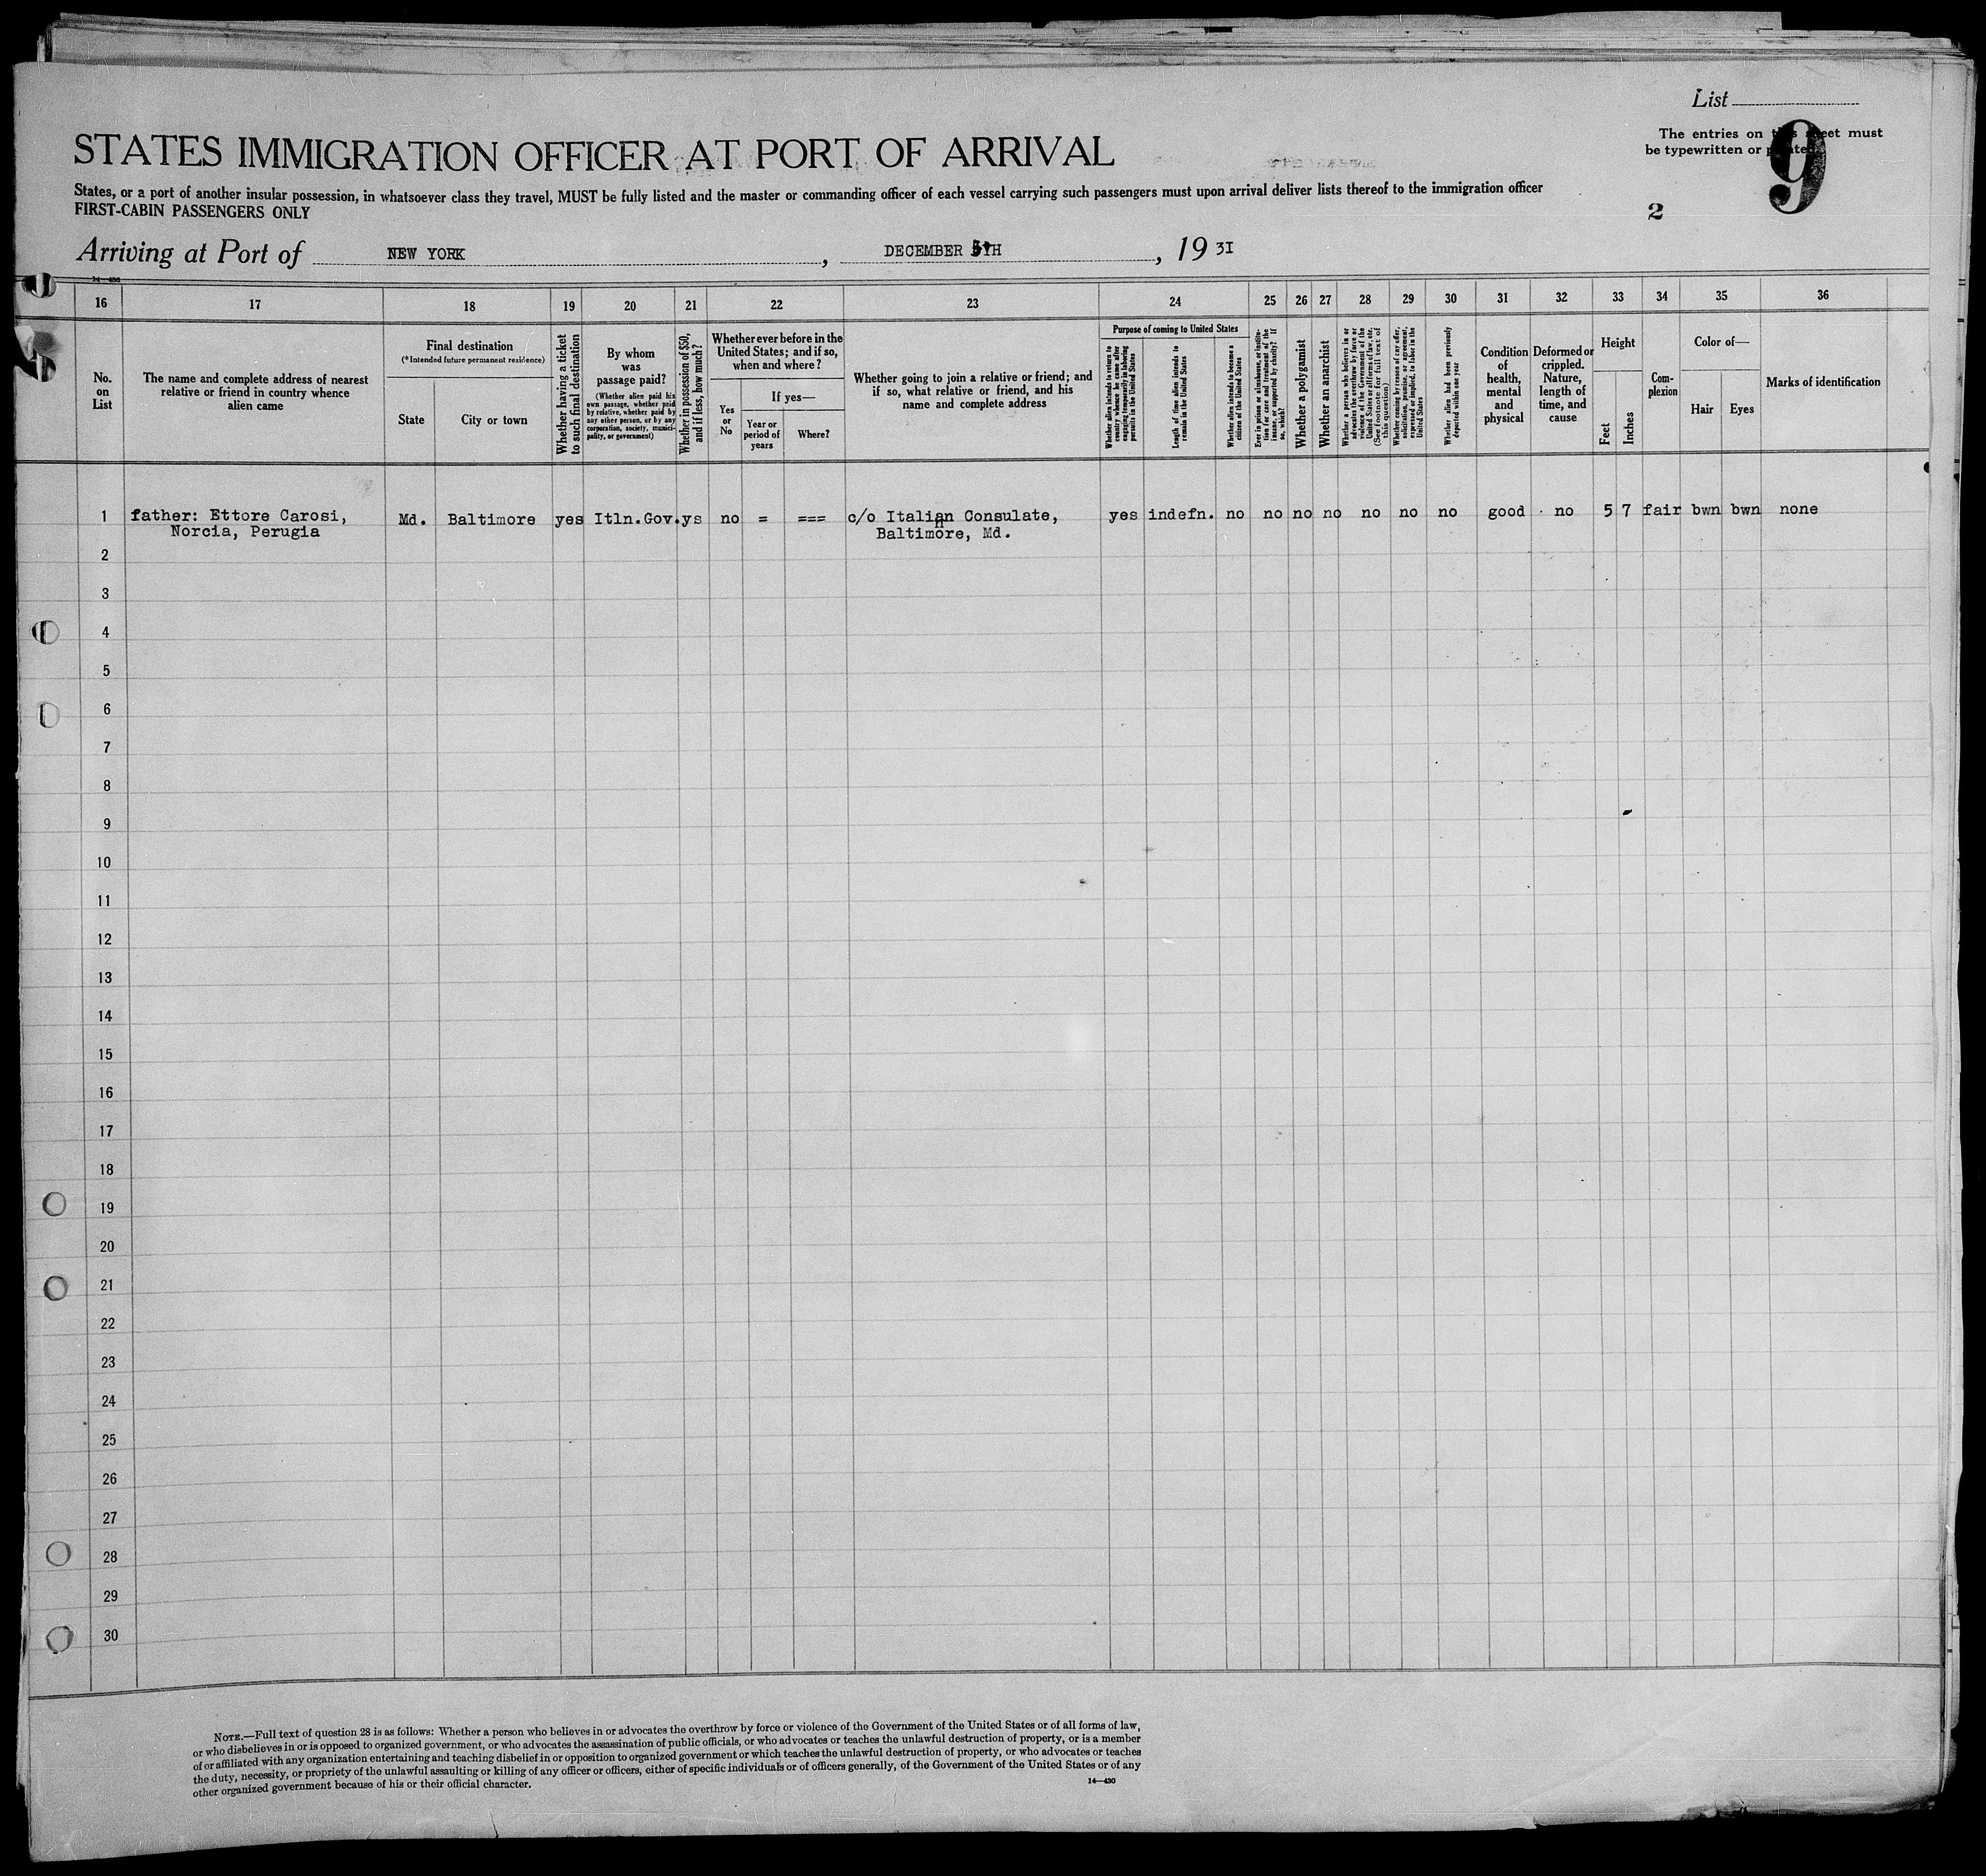 List
The entries on this sheet must
be typewritten or printed.
9
2
STATES IMMIGRATION OFFICER AT PORT OF ARRIVAL
States, or a port of another insular possession, in whatsoever class they travel, MUST be fully listed and the master or commanding officer of each vessel carrying such passengers must upon arrival deliver lists thereof to the immigration officer
FIRST-CABIN PASSENGERS ONLY
Arriving at Port of NEW YORK, DECEMBER TH, 19 31
14—430
16 17 18 19 20 21 22 23 24 25 26 27 28 29 30 31 32 33 34 35 36
No.
on
List
The name and complete address of nearest
relative or friend in country whence
alien came
Final destination
(*Intended future permanent residence)
State
City or town
Whether having a ticket
to such final destination
By whom
was
passage paid?
(Whether alien paid his
own passage, whether paid
by relative, whether paid by
any other person, or by any
corporation, society, munici-
pality, or government)
Whether in possession of $50,
and if less, how much?
Whether ever before in the
United States; and if so,
when and where?
Yes
or
No
If yes—
Year or
period of
years
Where?
Whether going to join a relative or friend; and
if so, what relative or friend, and his
name and complete address
Purpose of coming to United States
Whether alien intends to return to
country whence he came after
engaging temporarily in laboring
pursuits in the United States
Length of time alien intends to
remain in the United States
Whether alien intends to become a
citizen of the United States
Ever in prison or almshouse, or institu-
tion for care and treatment of the
insane, or supported by charity? If
so, which?
Whether a polygamist
Whether an anarchist
Whether a person who believes in or
advocates the overthrow by force or
violence of the Government of the
United States or all forms of law, etc.
(See footnote for full text of
this question)
Whether coming by reason of any offer,
solicitation, promise, or agreement,
expressed or implied, to labor in the
United States
Whether alien had been previously
deported within one year
Condition
of
health,
mental
and
physical
Deformed or
crippled.
Nature,
length of
time, and
cause
Height
Feet
Inches
Com-
plexion
Color of—
Hair
Eyes
Marks of identification
1 father: Ettore Carosi, Md. Baltimore yes Itln.Gov. ys no = === c/o Italian Consulate, yes indefn. no no no no no no no good no 5 7 fair bwn bwn none
Norcia, Perugia Baltimore, Md.
2
3
4
5
6
7
8
9
10
11
12
13
14
15
16
17
18
19
20
21
22
23
24
25
26
27
28
29
30
NOTE.—Full text of question 28 is as follows: Whether a person who believes in or advocates the overthrow by force or violence of the Government of the United States or of all forms of law,
or who disbelieves in or is opposed to organized government, or who advocates the assassination of public officials, or who advocates or teaches the unlawful destruction of property, or is a member
of or affiliated with any organization entertaining and teaching disbelief in or opposition to organized government or which teaches the unlawful destruction of property, or who advocates or teaches
the duty, necessity, or propriety of the unlawful assaulting or killing of any officer or officers, either of specific individuals or of officers generally, of the Government of the United States or of any
other organized government because of his or their official character.
14—430